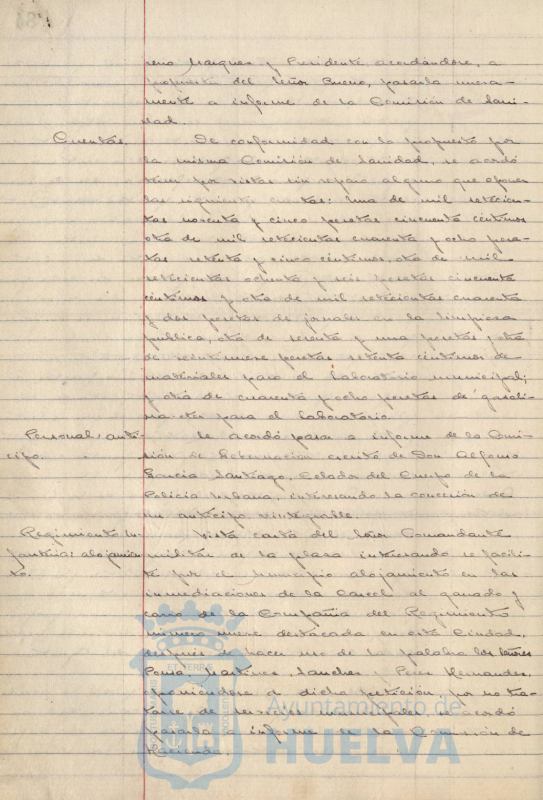 reno Marquez y Presidente, acordándose, a
propuesta del Señor Bueno, pasarla nueva-
mente a informe de la Comisión de Sani-
dad.
Cuentas. De conformidad con lo propuesto por
la misma Comisión de Sanidad, se acordó
tener por vistas sin reparo alguno que oponer
las siguientes cuentas: una de mil setecien-
tas noventa y cinco pesetas cincuenta céntimos
otra de mil setecientas cuarenta y ocho pese-
tas setenta y cinco céntimos, otra de mil
setecientas ochenta y seis pesetas cincuenta
céntimos y otra de mil setecientas cuarenta
y dos pesetas de jornales en la limpieza
pública, otra de sesenta y una pesetas y otra
de veintinueve pesetas setenta céntimos de
materiales para el Laboratorio municipal;
y otra de cuarenta y ocho pesetas de gasoli-
na para el Laboratorio.
Personal: anti- Se acordó pasar a informe de la Comi-
cipo. sión de Gobernación escrito de Don Alfonso
García Santiago, Celador del Cuerpo de la
Policía Urbana, interesando la concesión de
un anticipo reintegrable.
Regimiento In- Vista carta del Señor Comandante
fantería: alojamien- militar de la plaza interesando se facili-
to. te por el Municipio alojamiento en las
inmediaciones de la Carcel al ganado y
carro de la Compañía del Regimiento
número nueve destacada en esta Ciudad,
después de hacer uso de la palabra los Señores
Martinez, Sanchez y Perez Hernandez,
oponiéndose a dicha petición por no tra-
tarse de servicios municipales, se acordó
pasarla a informe de la Comisión de
Hacienda.
Ayuntamiento de
HUELVA